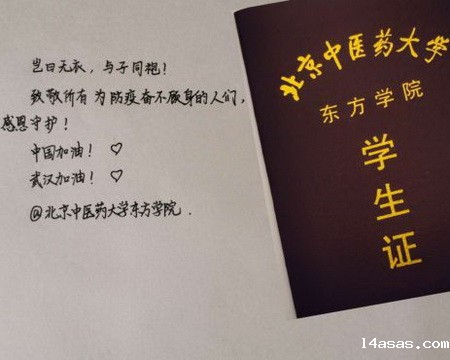 岂曰无衣，与子同袍！
致敬所有为防疫奋不顾身的人们，
感恩守护！
中国加油！♡
武汉加油！♡
@北京中医药大学东方学院.
北京中医药大学
东方学院
学生证
14asas.com